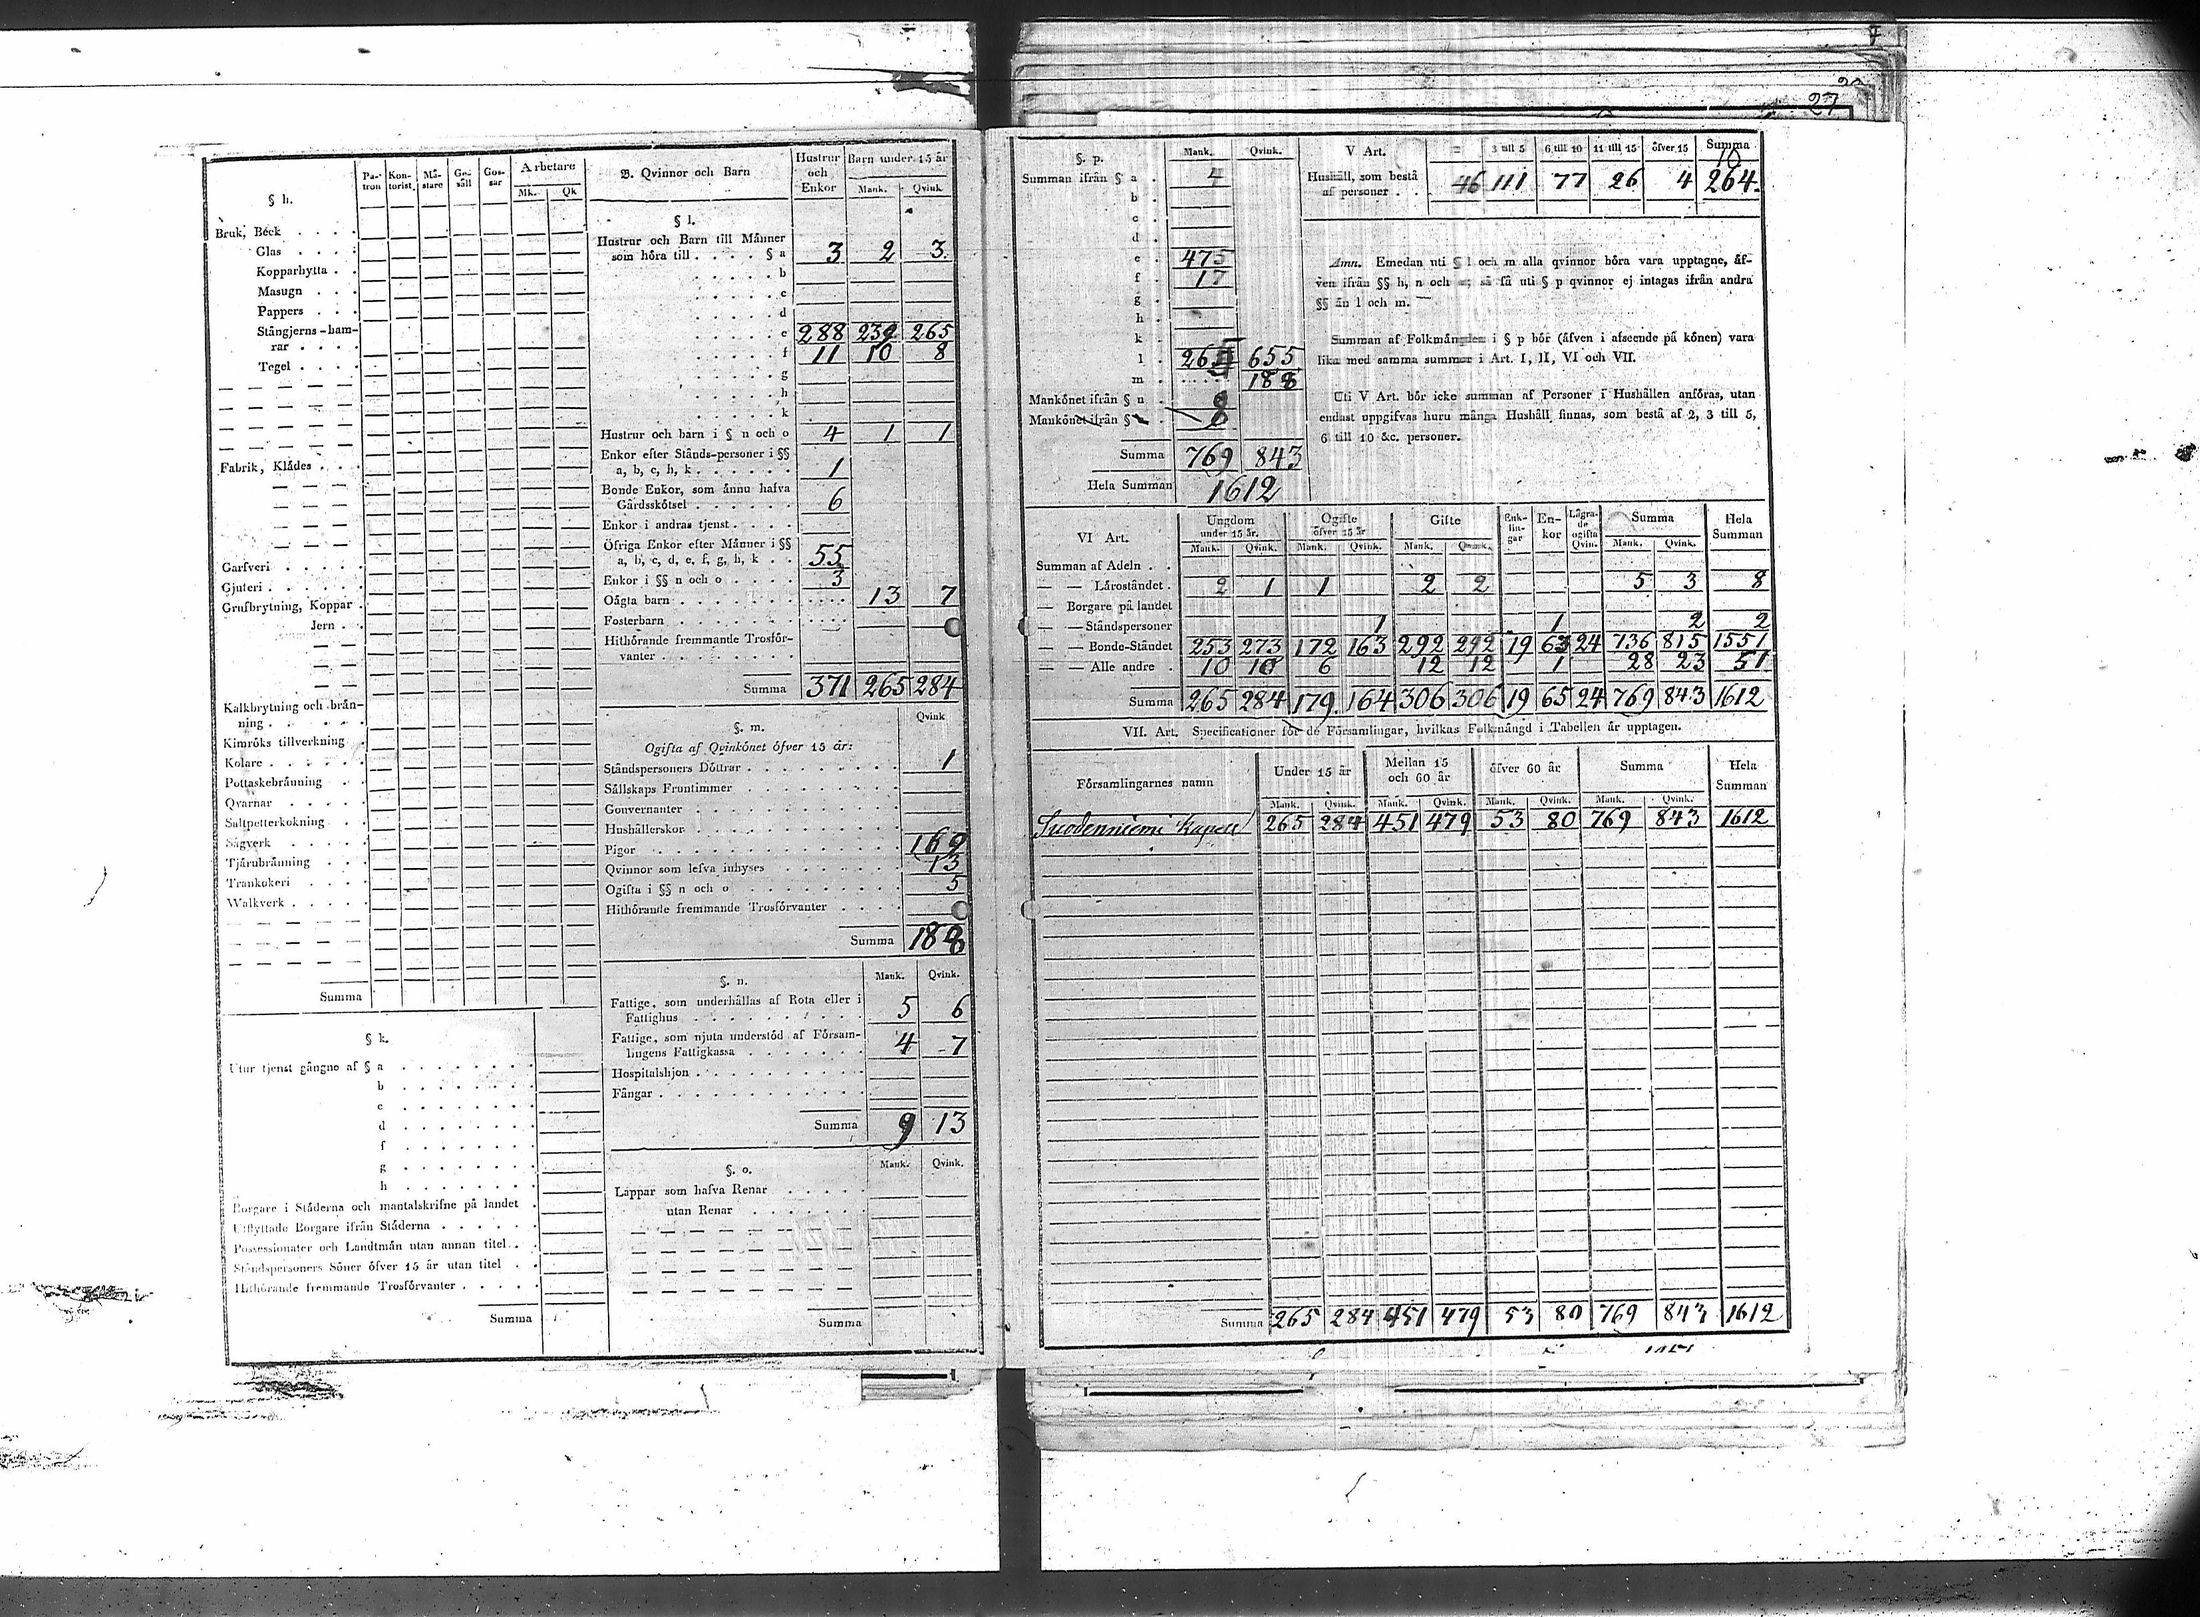 27
§ h.
Pa-tron Kon-torist. Mä-stare Ge-säll Gos-sar Arbetare
Mk. Qk
Bruk, Beck
Glas
Kopparhytta
Masugn
Pappers
Stångjerns-ham-
rar
Tegel
Fabrik, Klädes
Garfveri
Gjuteri
Grufbrytning, Koppar
Jern
Kalkbrytning och brän-
ning
Kimröks tillverkning
Kolare
Pottaskebränning
Qvarnar
Saltpetterkokning
Sågverk
Tjärubränning
Trankokeri
Walkverk
Summa
§ k.
Utur tjenst gångne af § a
b
c
d
f
g
h
Borgare i Städerna och mantalskrifne på landet
Utflyttade Borgare ifrån Städerna
Possessionater och Landtmän utan annan titel
Ståndspersoners Söner öfver 15 år utan titel
Hithörande fremmande Trosförvanter
Summa
B. Qvinnor och Barn Hustrur och Enkor Barn under 15 år
Mank. Qvink
§ l.
Hustrur och Barn till Männer
som höra till § a 3 2 3
b
c
d
e 288 239 265
f 11 10 8
g
h
k
Hustrur och barn i § n och o 4 1 1
Enkor efter Stånds-personer i §§
a, b, c, h, k 1
Bonde Enkor, som ännu hafva
Gårdsskötsel 6
Enkor i andras tjenst
Öfriga Enkor efter Männer i §§
a, b, c, d, e, f, g, h, k 55
Enkor i §§ n och o 3
Oägta barn 13 7
Fosterbarn
Hithörande fremmande Trosför-
vanter
Summa 371 265 284
§. m. Qvink
Ogifta af Qvinkönet öfver 15 år:
Ståndspersoners Döttrar 1
Sällskaps Fruntimmer
Gouvernanter
Hushållerskor
Pigor 169
Qvinnor som lefva inhyses 13
Ogifta i §§ n och o 5
Hithörande fremmande Trosförvanter
Summa 188
§. n. Mank. Qvink.
Fattige, som underhållas af Rota eller i
Fattighus 5 6
Fattige, som njuta understöd af Försam-
lingens Fattigkassa 4 7
Hospitalshjon
Fångar
Summa 9 13
§. o. Mank. Qvink.
Lappar som hafva Renar
utan Renar
Summa
§. p. Mank. Qvink.
Summan ifrån § a 4
b
c
d
e 475
f 17
g
h
k
l 265 655
m 188
Mankönet ifrån § n
Mankönet ifrån §
Summa 769 843
Hela Summan 1612
V Art. 3 till 5 6 till 10 11 till 15 öfver 15 Summa
10
Hushåll, som bestå
af personer 46 111 77 26 4 264.
Anm. Emedan uti § l och m alla qvinnor böra vara upptagne, äf-
ven ifrån §§ h, n och så få uti § p qvinnor ej intagas ifrån andra
§§ än l och m.
Summan af Folkmängden i § p bör (äfven i afseende på könen) vara
lika med samma summor i Art. I, II, VI och VII.
Uti V Art. bör icke summan af Personer i Hushållen anföras, utan
endast uppgifvas huru många Hushåll finnas, som bestå af 2, 3 till 5,
6 till 10 &c. personer.
VI Art. Ungdom under 15 år. Ogifte öfver 15 år Gifte Enk-lin-gar En-kor Lägra-de ogifta Qvin. Summa Hela Summan
Mank. Qvink. Mank. Qvink. Mank. Qvink. Mank. Qvink.
Summan af Adeln
— — Läroståndet 2 1 1 2 2 5 3 8
— Borgare på landet
— — Ståndspersoner 1 1 2 2
— — Bonde-Ståndet 253 273 172 163 292 292 19 63 24 736 815 1551
— — Alle andre 10 10 6 12 12 1 28 23 51
Summa 265 284 179 164 306 306 19 65 24 769 843 1612
VII. Art. Specificationer för de Församlingar, hvilkas Folkmängd i Tabellen är upptagen.
Församlingarnes namn Under 15 år Mellan 15 och 60 år öfver 60 år Summa Hela Summan
Mank. Qvink. Mank. Qvink. Mank. Qvink. Mank. Qvink.
Suodenniemi Kapell 265 284 451 479 53 80 769 843 1612
Summa 265 284 451 479 53 80 769 843 1612